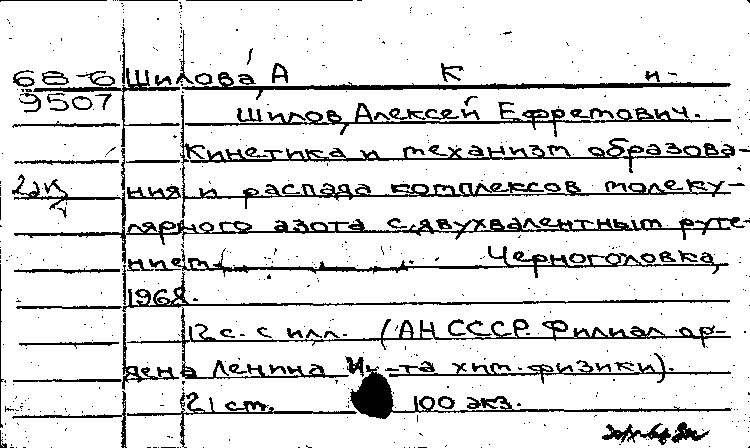 68-6 Шилова А К н-
9507 Шилов, Алексей Ефремович.
Кинетика и механизм образова-
2эк ния и распада комплексов молеку-
лярного азота с двухвалентным руте-
нием Черноголовка,
1968.
12 с. с илл. (АН СССР. Филиал ор-
дена Ленина Ин-та хим. физики).
21 см. 100 экз.